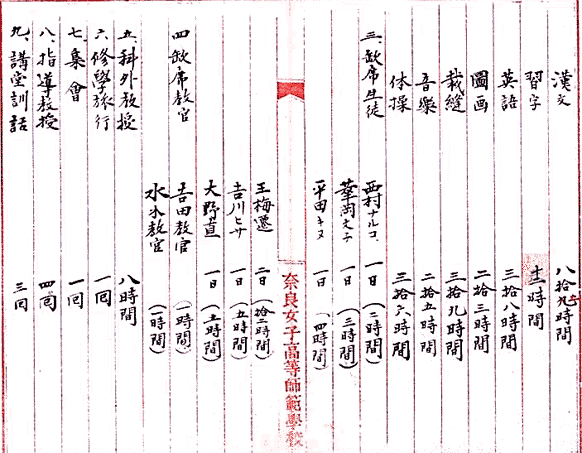 漢文 八拾九時間
習字 十二時間
英語 三拾八時間
圖画 二拾三時間
裁縫 三拾九時間
音樂 二拾五時間
体操 三拾六時間
三、缺席生徒 西村ナルコ 一日 (二時間)
華岡文子 一日 (三時間)
平田キヌ 一日 (四時間)
奈良女子高等師範學校
王梅選 二日 (拾一時間)
吉川ヒサ 一日 (五時間)
大野直 一日 (七時間)
四、缺席教官 吉田教官 (一時間)
水木教官 (一時間)
五、科外教授 八時間
六、修學旅行 一回
七、集會 一回
八、指導教授 四回
九、講堂訓話 三回